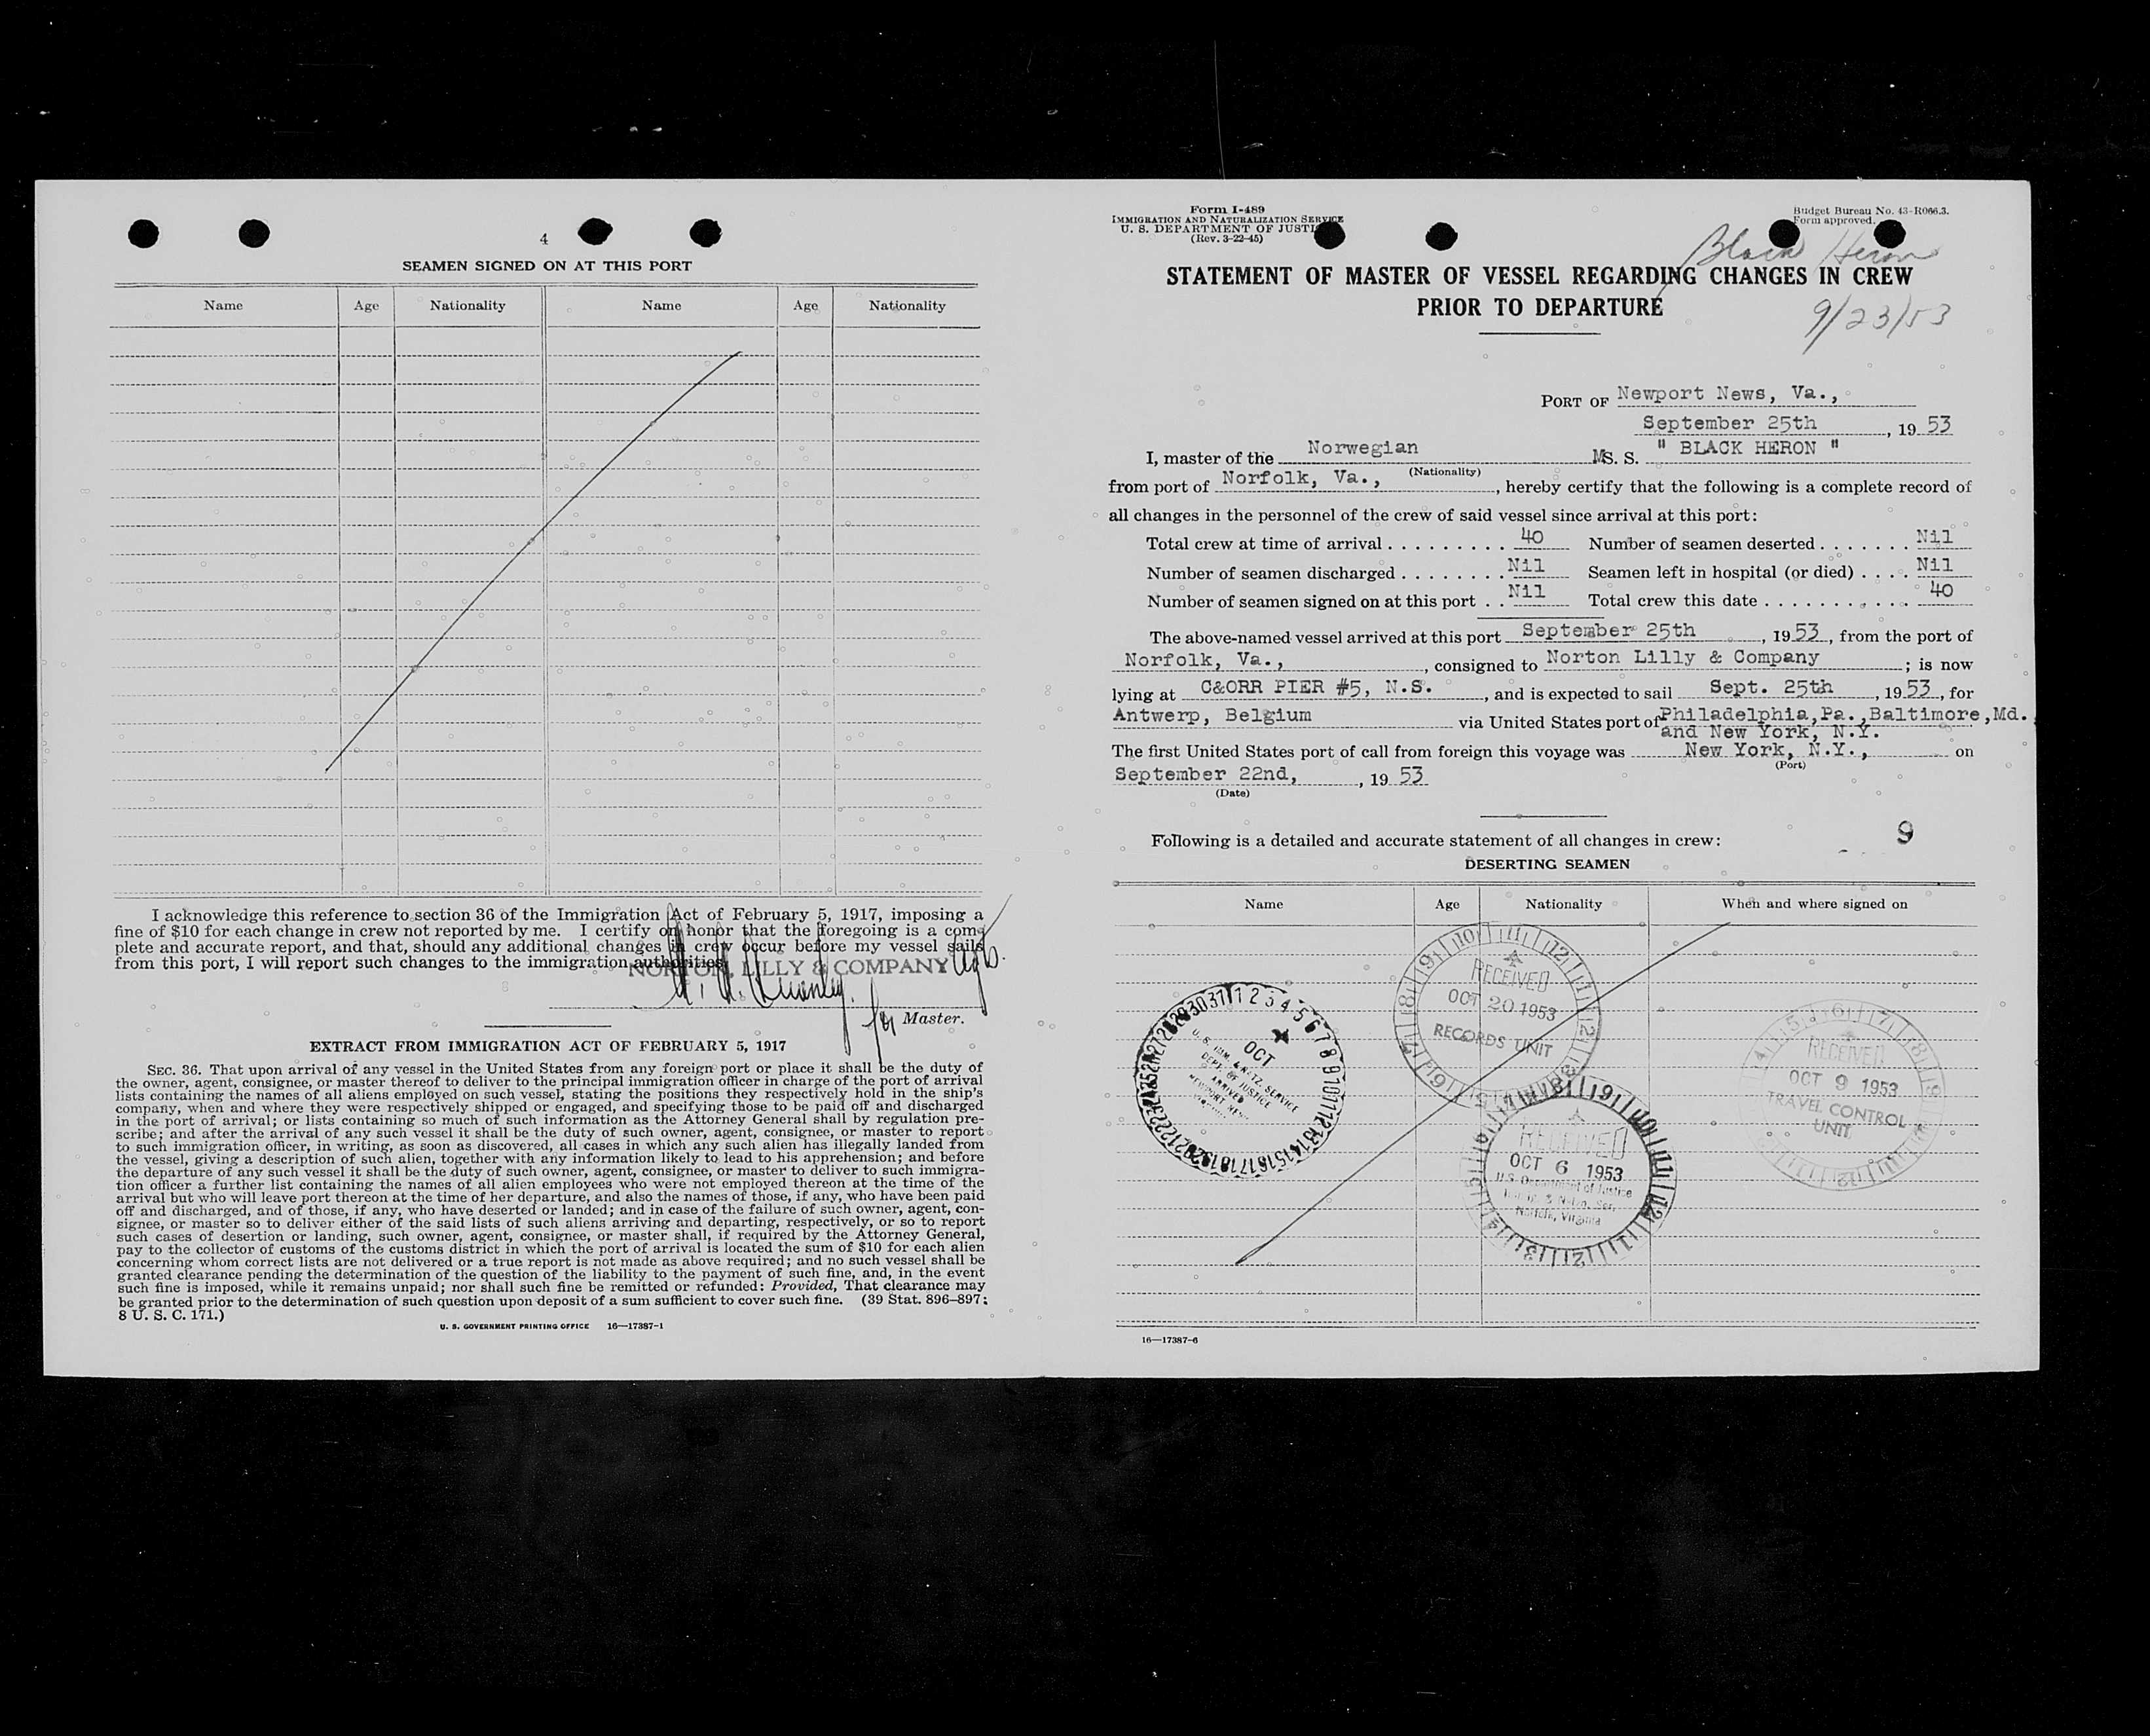 4
SEAMEN SIGNED ON AT THIS PORT
Name Age Nationality Name Age Nationality
I acknowledge this reference to section 36 of the Immigration Act of February 5, 1917, imposing a
fine of $10 for each change in crew not reported by me. I certify on honor that the foregoing is a com-
plete and accurate report, and that, should any additional changes in crew occur before my vessel sails
from this port, I will report such changes to the immigration authorities.
NORTON, LILLY & COMPANY Agts.
for Master.
EXTRACT FROM IMMIGRATION ACT OF FEBRUARY 5, 1917
SEC. 36. That upon arrival of any vessel in the United States from any foreign port or place it shall be the duty of
the owner, agent, consignee, or master thereof to deliver to the principal immigration officer in charge of the port of arrival
lists containing the names of all aliens employed on such vessel, stating the positions they respectively hold in the ship's
company, when and where they were respectively shipped or engaged, and specifying those to be paid off and discharged
in the port of arrival; or lists containing so much of such information as the Attorney General shall by regulation pre-
scribe; and after the arrival of any such vessel it shall be the duty of such owner, agent, consignee, or master to report
to such immigration officer, in writing, as soon as discovered, all cases in which any such alien has illegally landed from
the vessel, giving a description of such alien, together with any information likely to lead to his apprehension; and before
the departure of any such vessel it shall be the duty of such owner, agent, consignee, or master to deliver to such immigra-
tion officer a further list containing the names of all alien employees who were not employed thereon at the time of the
arrival but who will leave port thereon at the time of her departure, and also the names of those, if any, who have been paid
off and discharged, and of those, if any, who have deserted or landed; and in case of the failure of such owner, agent, con-
signee, or master so to deliver either of the said lists of such aliens arriving and departing, respectively, or so to report
such cases of desertion or landing, such owner, agent, consignee, or master shall, if required by the Attorney General,
pay to the collector of customs of the customs district in which the port of arrival is located the sum of $10 for each alien
concerning whom correct lists are not delivered or a true report is not made as above required; and no such vessel shall be
granted clearance pending the determination of the question of the liability to the payment of such fine, and, in the event
such fine is imposed, while it remains unpaid; nor shall such fine be remitted or refunded: Provided, That clearance may
be granted prior to the determination of such question upon deposit of a sum sufficient to cover such fine. (39 Stat. 896–897;
8 U. S. C. 171.)
U. S. GOVERNMENT PRINTING OFFICE 16—17387-1
Form I-489
IMMIGRATION AND NATURALIZATION SERVICE
U. S. DEPARTMENT OF JUSTI
(Rev. 3-22-45)
Budget Bureau No. 43-R066.3.
Form approved.
Black Heron
STATEMENT OF MASTER OF VESSEL REGARDING CHANGES IN CREW
PRIOR TO DEPARTURE
9/23/53
PORT OF Newport News, Va.,
September 25th, 19 53
I, master of the Norwegian MS. S. " BLACK HERON "
(Nationality)
from port of Norfolk, Va., , hereby certify that the following is a complete record of
all changes in the personnel of the crew of said vessel since arrival at this port:
Total crew at time of arrival . . . . . . . . . 40 Number of seamen deserted . . . . . . . Nil
Number of seamen discharged . . . . . . . . Nil Seamen left in hospital (or died) . . . . Nil
Number of seamen signed on at this port . . Nil Total crew this date . . . . . . . . . . . . 40
The above-named vessel arrived at this port September 25th, 19 53, from the port of
Norfolk, Va., , consigned to Norton Lilly & Company ; is now
lying at C&ORR PIER #5, N.S. , and is expected to sail Sept. 25th, 19 53, for
Antwerp, Belgium via United States port of Philadelphia,Pa.,Baltimore,Md.,
and New York, N.Y.
The first United States port of call from foreign this voyage was New York, N.Y., on
(Port)
September 22nd, , 19 53
(Date)
Following is a detailed and accurate statement of all changes in crew: 9
DESERTING SEAMEN
Name Age Nationality When and where signed on
RECEIVED
OCT 20 1953
RECORDS UNIT
OCT
U. S. IMM. & NATZ. SERVICE
DEPT. OF JUSTICE
ARRIVED
RECEIVED
OCT 9 1953
TRAVEL CONTROL
UNIT
RECEIVED
OCT 6 1953
U.S. Department of Justice
Norfolk, Virginia
16—17387-6